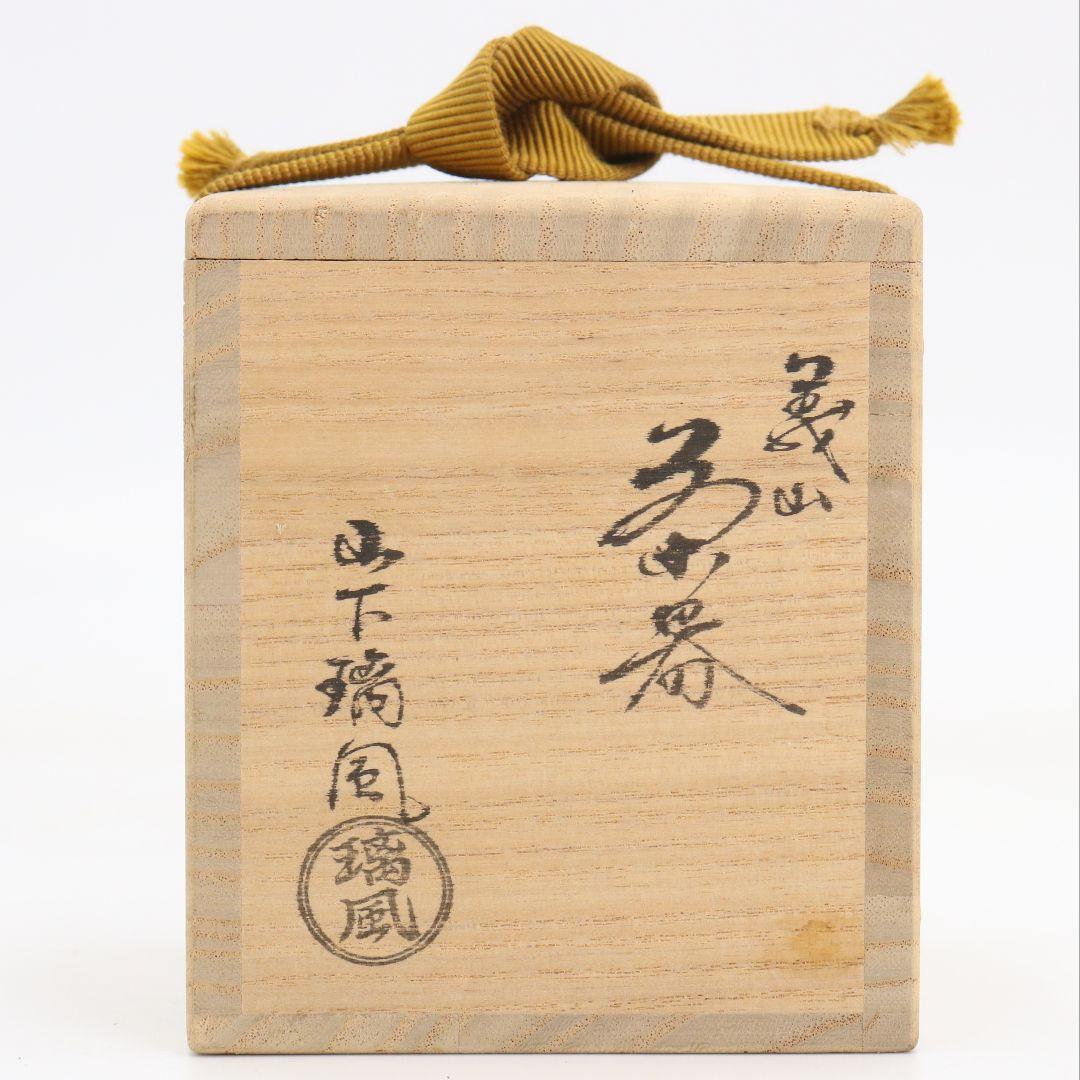 義山
茶器
山下璃風
璃風